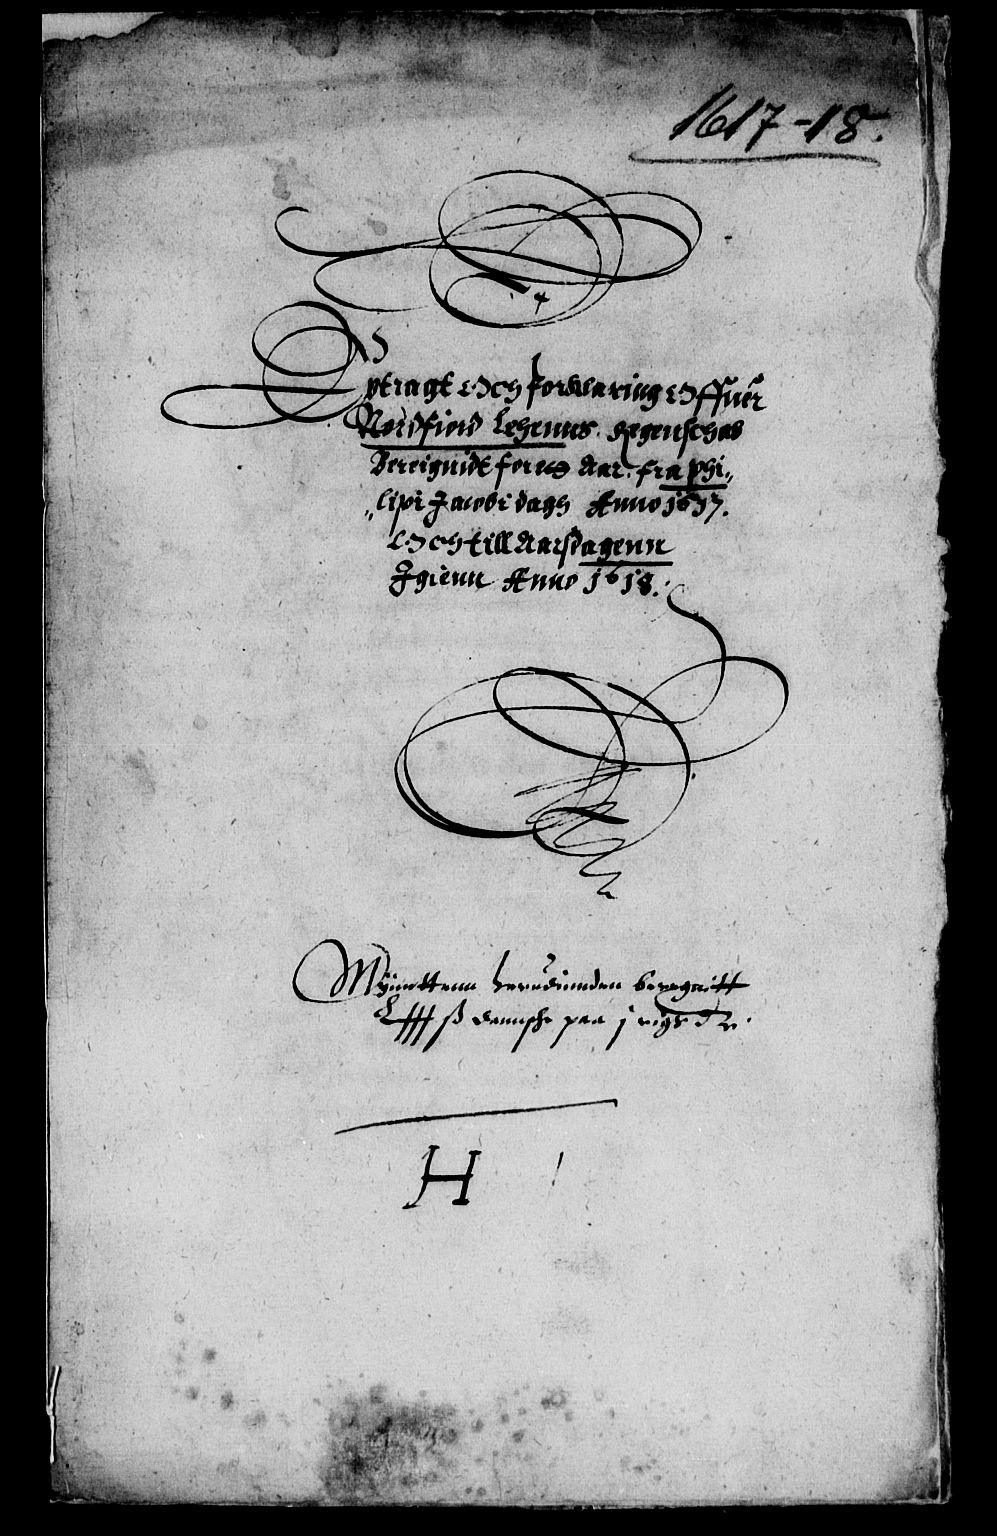 1617-18.
Optragt Och forklaring Offuer
Nordfiord Lehenns Regenschab
Bereignidt for it Aar. fra phi„
„lipi Jacobi dagh Anno 1617.
Och till Aarsdagenn
Igienn Anno 1618.
Myundttenn herudinnden beregnitt
ß dannske paa j rigs dr.
H